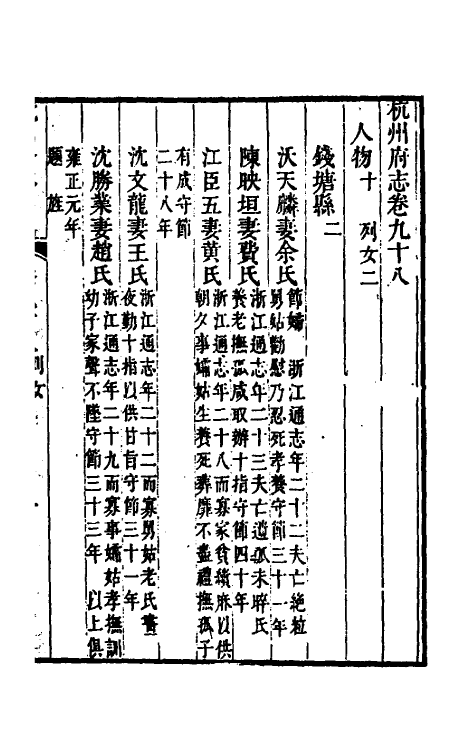 杭州府志卷九十八
人物十 列女二
錢塘縣二
沃天麟妻余氏 節孀 浙江通志年二十二夫亡絶粒
舅姑勸慰乃忍死孝養守節三十一年
陳映垣妻費氏 浙江通志年二十三夫亡遺孤未晬氏
養老撫孤咸取辦十指守節四十年
江臣五妻黄氏 浙江通志年二十八而寡家貧績麻以供
朝夕事孀姑生養死葬靡不盡禮撫孤子
有成守節
二十八年
沈文龍妻王氏 浙江通志年二十二而寡舅姑老氏晝
夜勤十指以供甘旨守節三十一年
沈勝業妻趙氏 浙江通志年二十九而寡事孀姑孝撫訓
幼子家聲不墜守節三十三年 以上俱
雍正元年
題旌
列女